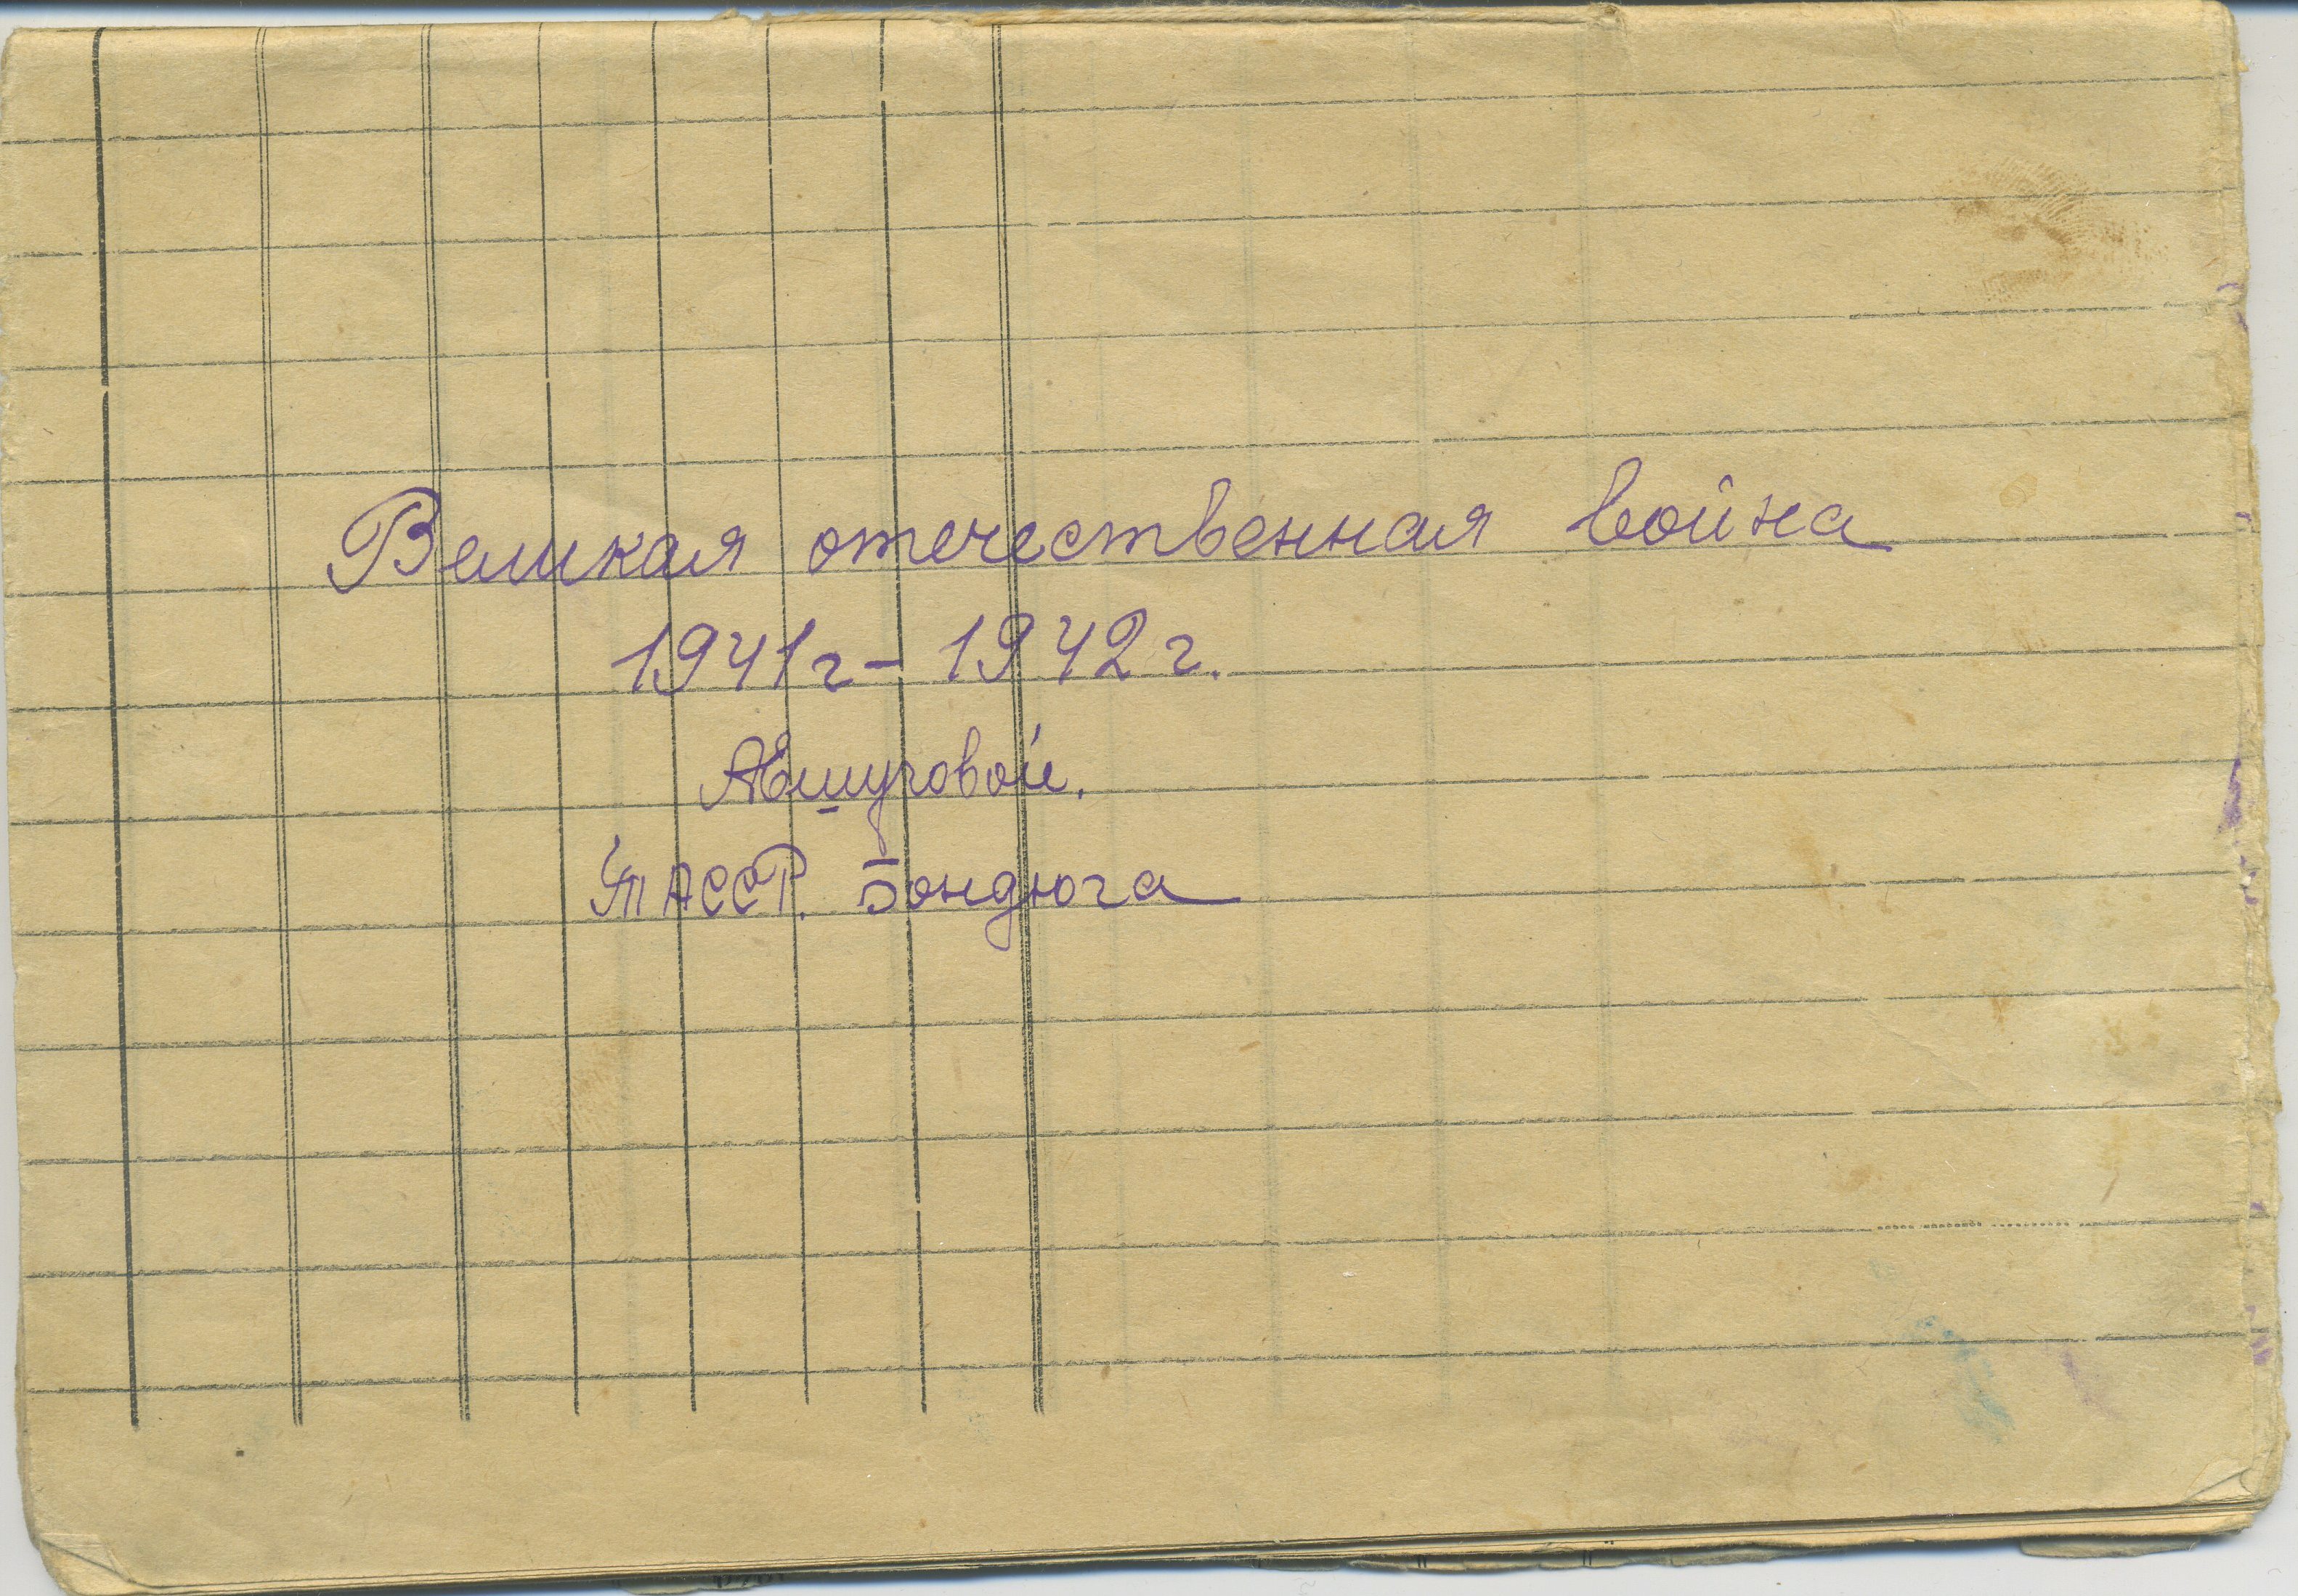 Великая отечественная война
1941г - 1942г.
Авшуговой.
ТАССР. Бондюга